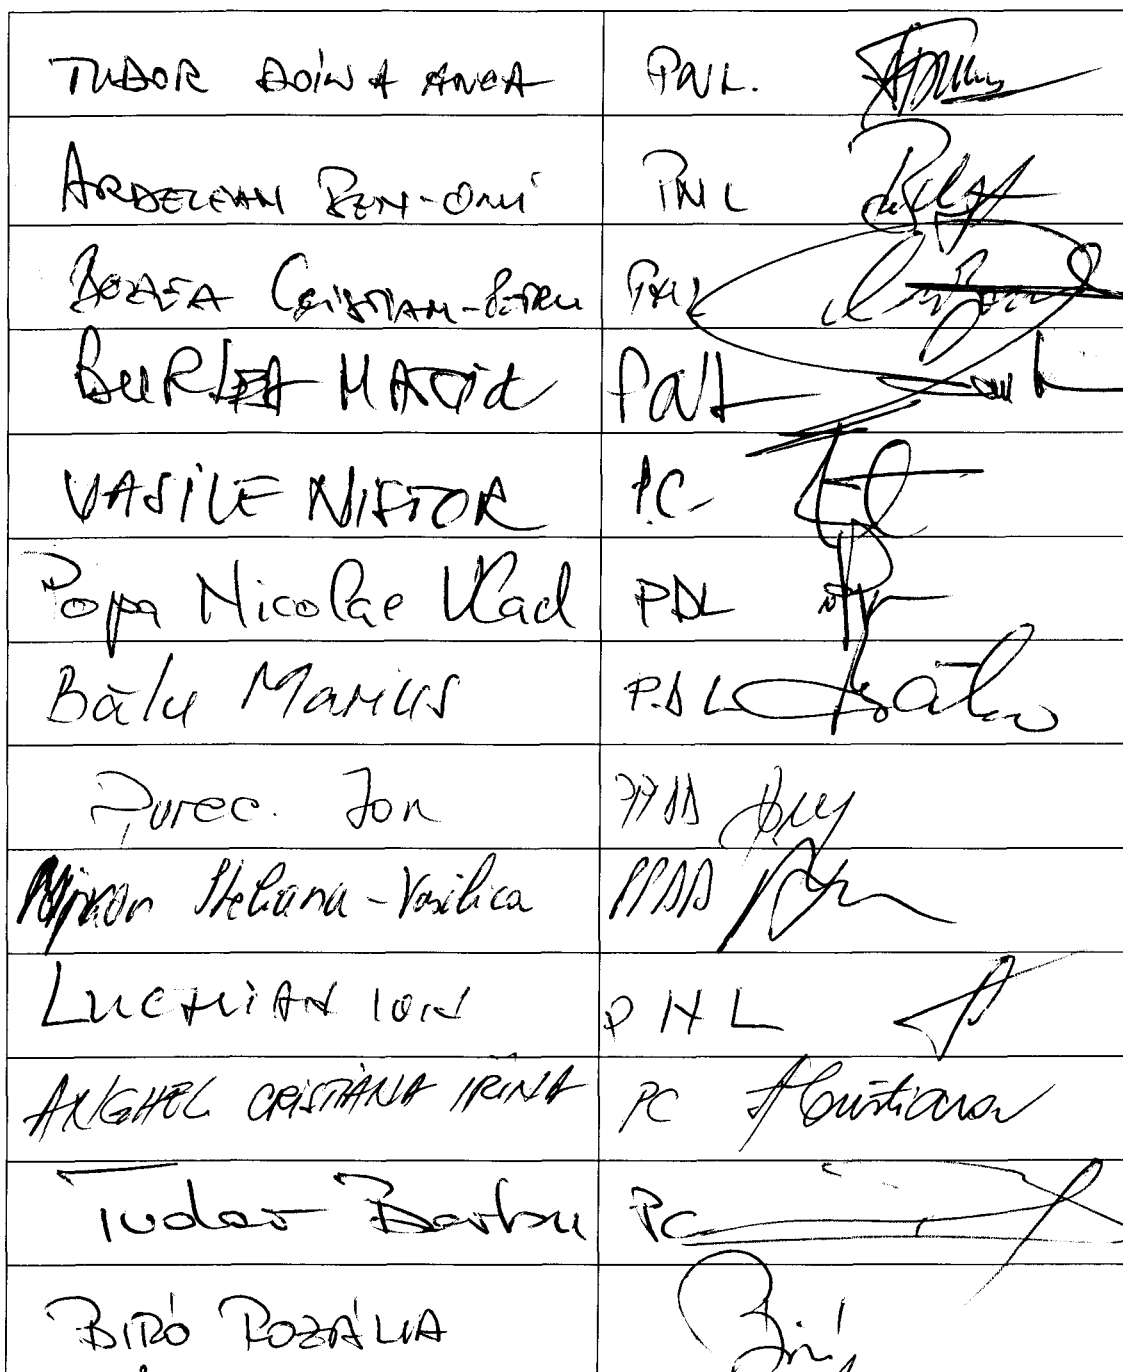 TUDOR DOINA ANCA PNL.
ARDELEAN BEN-ONI PNL
BODEA CRISTIAN-PETRU PNL
BURLEA MARIN PNL
VASILE NISTOR P.C.
Popa Nicolae Vlad PDL
Bălu Marius P.D.L Bălu
Ion PPDD
Steliana-Vasilica PPDD
LUCHIAN ION PNL
ANGHEL CRISTIANA IRINA PC ACristiana
Tudor Barbu PC
BIRÓ ROZÁLIA Biró